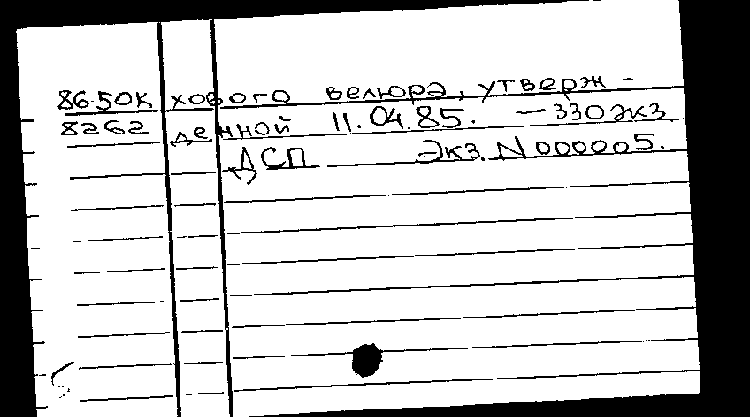 86-50К хового велюра, утверж-
8262 денной 11.04.85. — 330 экз
ДСП Экз. N 000005.
5